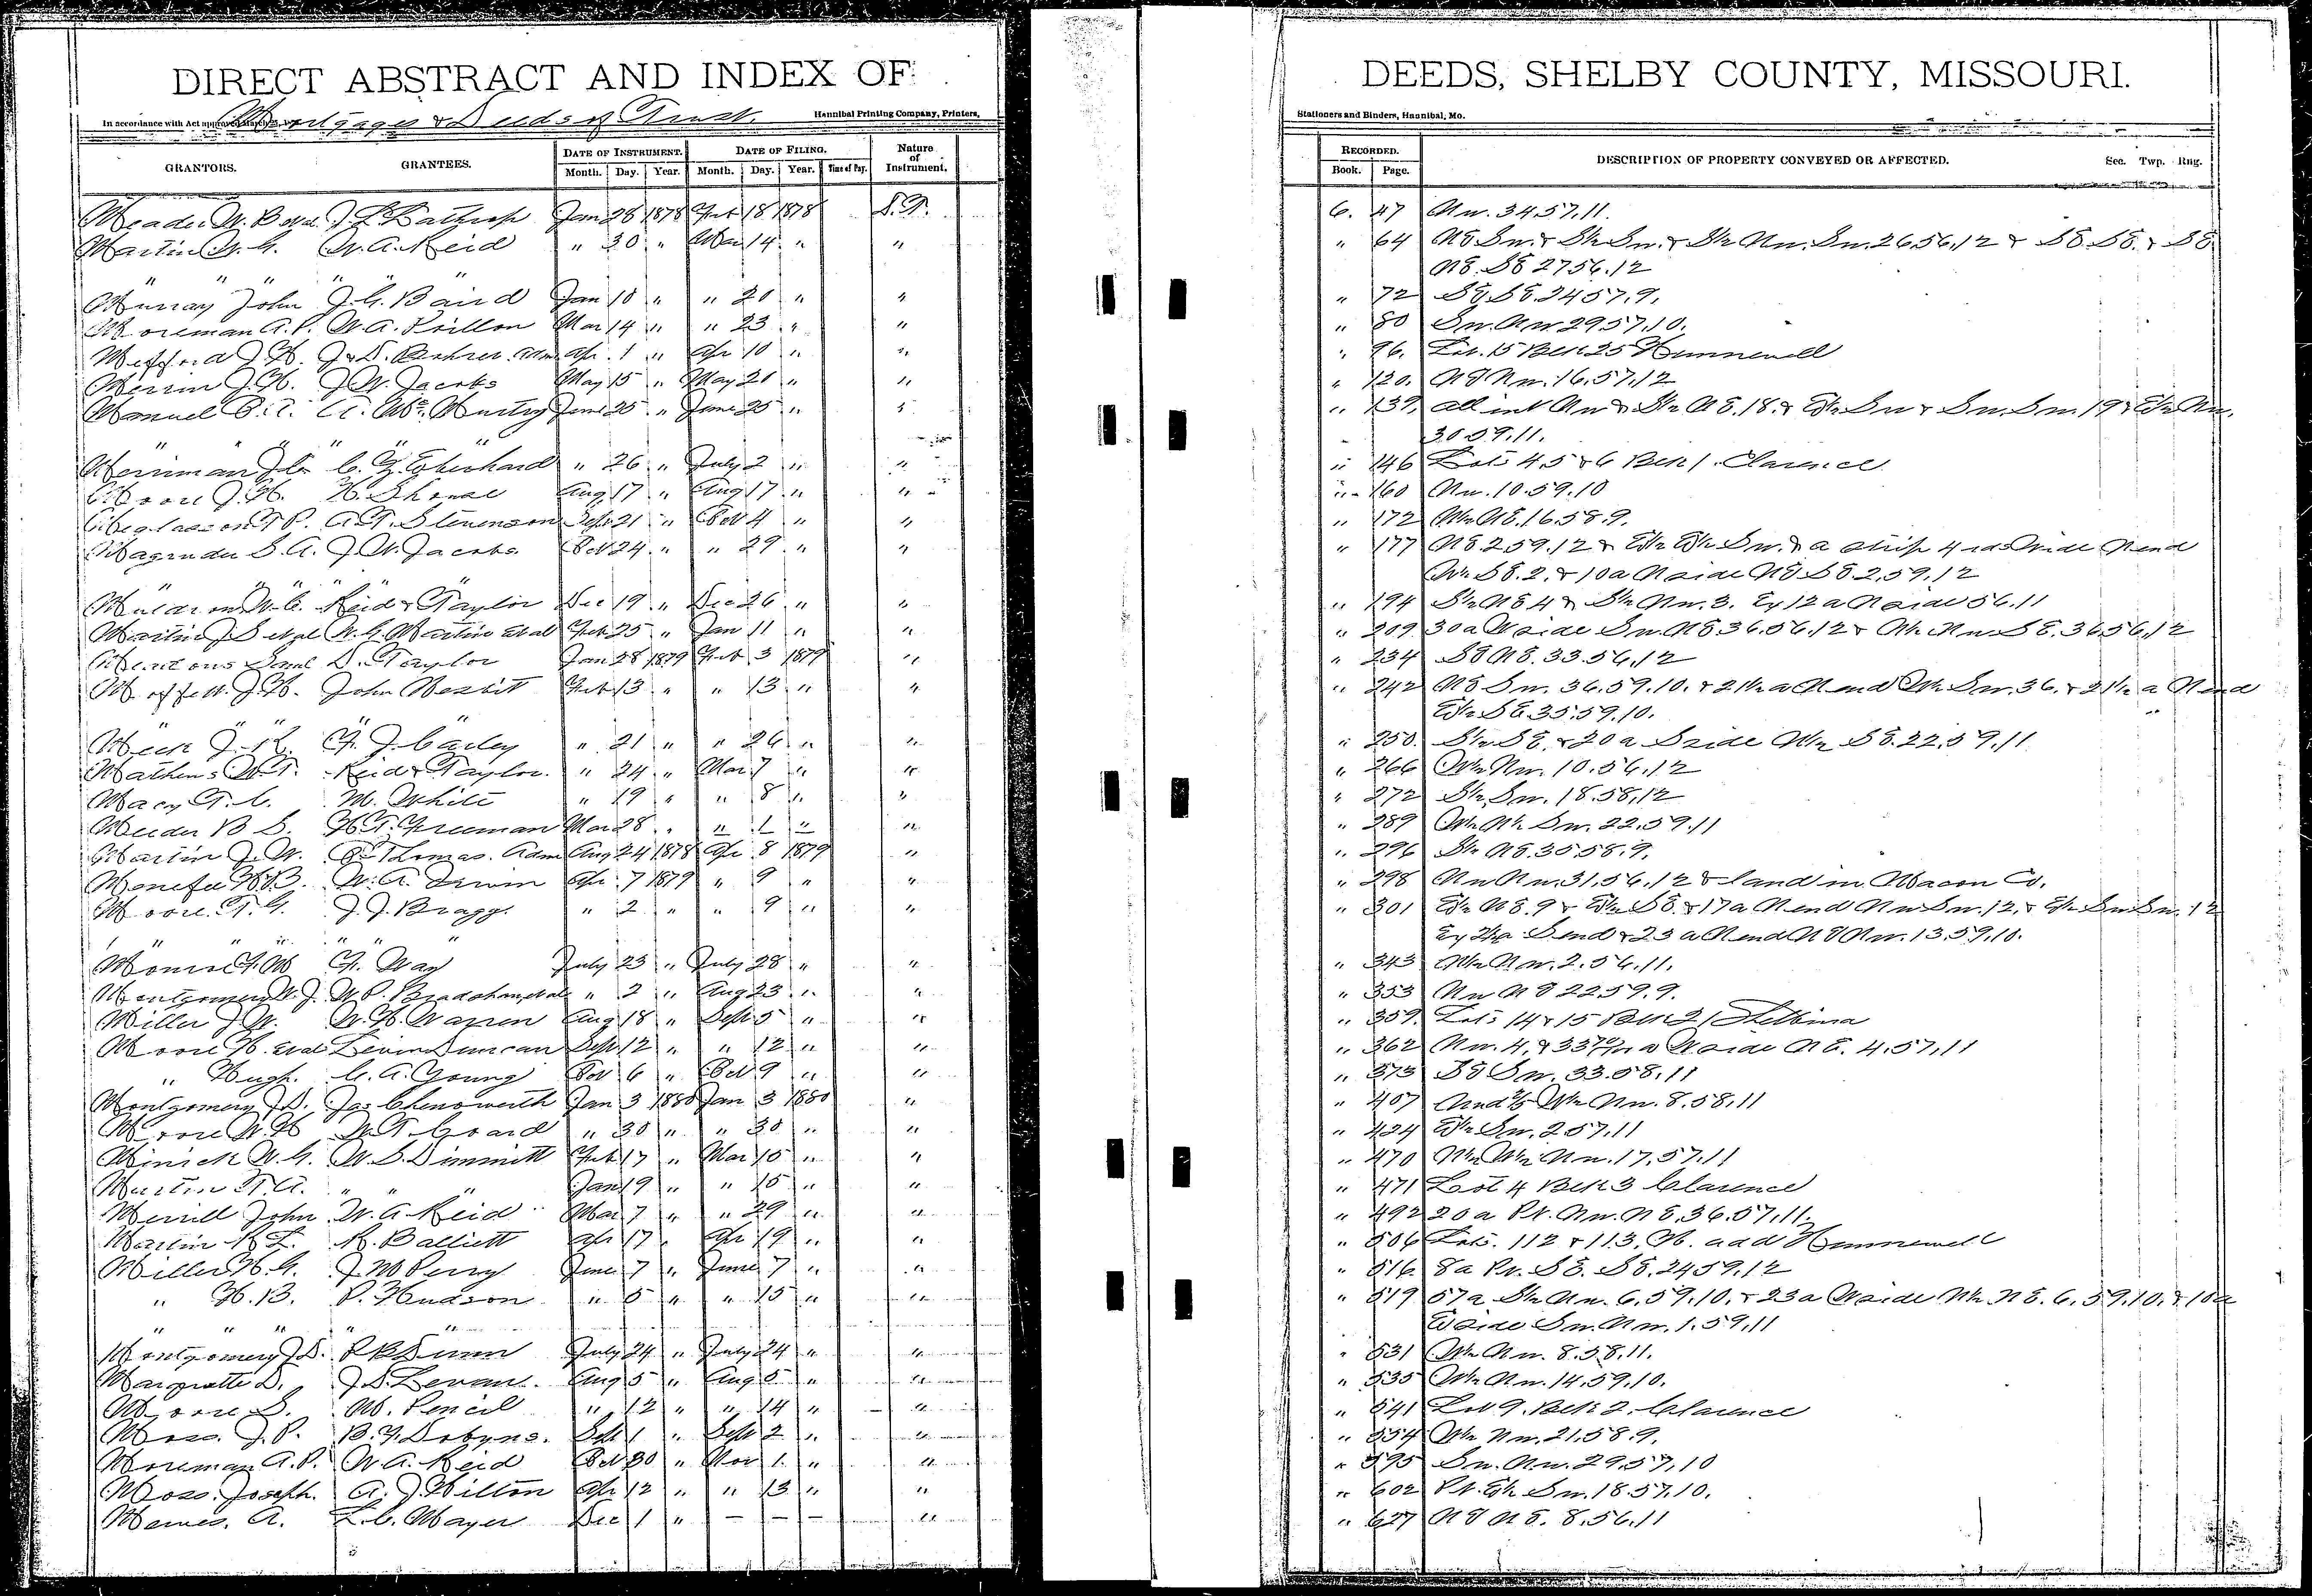 DIRECT ABSTRACT AND INDEX OF
Mortgages & Deeds of Trust.
In accordance with Act approved March
Hannibal Printing Company, Printers,
GRANTORS. GRANTEES. DATE OF INSTRUMENT. DATE OF FILING. Nature of Instrument.
Month. Day. Year. Month. Day. Year. Time of Pay.
Meader W. B et al J L Lathrop Jan 28 1878 Feb 18 1878 D.T.
Martin W. G. W. A. Reid " 30 " Mar 14 " "
" " " " " "
Murray John J. G. Baird Jan 10 " " 20 " "
Moreman A. P. W. A. Mar 14 " " 23 " "
Mefford J. H. J & D. adm Apr 1 " Apr 10 " "
Merrin J. H. J. W. Jacobs May 15 " May 20 " "
Manuel A. Mc Murtry June 25 " June 25 " "
" " " " "
Merriman J C. Eberhard " 26 " July 2 " "
Moore J. H. H. Shouse Aug 17 " Aug 17 " "
Meglasson T P. A. T. Stevenson Sept 21 " Oct 4 " "
Magruder S. A. J. W. Jacobs Oct 24 " " 29 " "
" " " " " "
Muldrow W. C. Reid & Taylor Dec 19 " Dec 26 " "
Martin J S et al W. G. Martin et al Feb 25 " Jan 11 " "
Saml D. Taylor Jan 28 1879 Feb 3 1879 "
Moffett J. H. John Nesbit Feb 13 " " 13 " "
" " " " "
Meek J. K. F. J. Carley " 21 " " 26 " "
Mathews W. T. Reid & Taylor " 24 " Mar 7 " "
Macy T. C. M. White " 19 " " 8 " "
Meeder B S. H T. Freeman Mar 28 " " 1 " "
Martin J. W. Thomas Adm Aug 24 1878 Apr 8 1879 "
Menefee H B. W. A. Irwin Apr 7 1879 " 9 " "
Moore T. G. J. J. Bragg " 2 " " 9 " "
" " " " " "
Monroe F. M F. Way July 23 " July 28 " "
Montgomery W. J. W. P. Bradshaw et al " 2 " Aug 23 " "
Miller J W. W. H. Warren Aug 18 " Sept 5 " "
Moore H. et al Levin Duncan Sept 12 " " 12 " "
" Hugh C. A. Young Oct 6 " Oct 9 " "
Montgomery J. D. Jas Chenoweth Jan 3 1880 Jan 3 1880 "
Moore W. H W. T. Coard " 30 " " 30 " "
Minick W. G. W. S. Dimmitt Feb 17 " Mar 15 " "
Martin T. A. " " " Jan 19 " " 15 " "
Merrill John W. A Reid Mar 7 " " 29 " "
Martin R L. R. Balliett Apr 17 " Apr 19 " "
Miller H. G. J. M Perry June 7 " June 7 " "
" H. B. P. Hudson " 5 " " 15 " "
" " " " "
Montgomery J. D. R B Dunn July 24 " July 24 " "
Marquette D. J. D. Levan Aug 5 " Aug 5 " "
Moore S. M. Pencil " 12 " " 14 " "
Moss J. P. B. F. Dobyns Sept 1 " Sept 2 " "
Moreman A. P. W. A. Reid Oct 30 " Nov 1 " "
Moss Joseph A. J. Hilton Apr 12 " " 13 " "
Mames A. L. C. Mayer Dec 1 " – – – "
DEEDS, SHELBY COUNTY, MISSOURI.
Stationers and Binders, Hannibal, Mo.
RECORDED. DESCRIPTION OF PROPERTY CONVEYED OR AFFECTED. Sec. Twp. Rng.
Book. Page.
6. 47 Nw. 34.57.11.
" 64 NE Sw. & S½ Sw. & S½ Nw. Sw. 26.56.12 & SE. SE. & SE
NE. SE 27.56.12
" 72 SE SE. 24.57.9.
" 80 Sw. Nw 29.57.10.
" 96. Lot 15 Blk 25 Hunnewell
" 120. NE Nw. 16.57.12
" 139. all int Nw & S½ NE. 18. & E½ Sw & Sw. Sw. 19 & E½ Nw.
30.59.11.
" 146 Lots 4.5 & 6 Blk 1. Clarence
" 160 Nw. 10.59.10
" 172 W½ NE. 16.58.9.
" 177 NE 2.59.12 & E½ E½ Sw. & a strip 4 rds wide N end
W½ SE. 2. & 10a N side NE SE 2.59.12
" 194 S½ NE 4 & S½ Nw. 3. Ex 12 a N side 56.11
" 209 30a W side Sw. NE 36.56.12 & W½ Nw SE. 36.56.12
" 234 SE NE. 33.56.12
" 242 NE Sw. 36.59.10. & 21½ a N end W½ Sw. 36. & 21½ a N end
E½ SE. 35.59.10.
" 250. E½ SE. & 20 a S side W½ SE. 22.59.11
" 266 W½ Nw. 10.56.12
" 272 S½ Sw. 18.58.12
" 289 W½ W½ Sw. 22.59.11
" 296 S½ NE. 30.58.9.
" 298 Nw Nw. 31.56.12 & land in Macon Co.
" 301 E½ NE. 9 & E½ SE. & 17a N end Nw Sw. 12. & E½ Sw Sw. 12
S end & 23 a N end NE Nw. 13.59.10.
" 343 W½ Nw. 2.56.11.
" 353 Nw NE 22.59.9.
" 359. Lots 14 & 15 Blk 21 Shelbina
" 362 Nw. 4. & 33 a N side NE. 4.57.11
" 373 SE Sw. 33.58.11
" 407 Und W½ Nw. 8.58.11
" 424 E½ Sw. 2.57.11
" 470 W½ W½ Nw. 17.57.11
" 471 Lot 4 Blk 3 Clarence
" 492 20 a Pt. Nw. NE. 36.57.11.
" 506 Lots. 112 & 113. H. add Hunnewell
" 516. 8a Pt. SE. SE. 24.59.12
" 519 57a S½ Nw. 6.59.10. & 23a W side W½ NE. 6.59.10. & 10a
E side Sw. Nw. 1.59.11
" 531 W½ Nw. 8.58.11.
" 535 W½ Nw. 14.59.10.
" 541 Lot 9. Blk 2. Clarence
" 554 W½ Nw. 21.58.9.
" 595 Sw. Nw. 29.57.10
" 602 Pt. E½ Sw. 18.57.10.
" 627 NE NE. 8.56.11